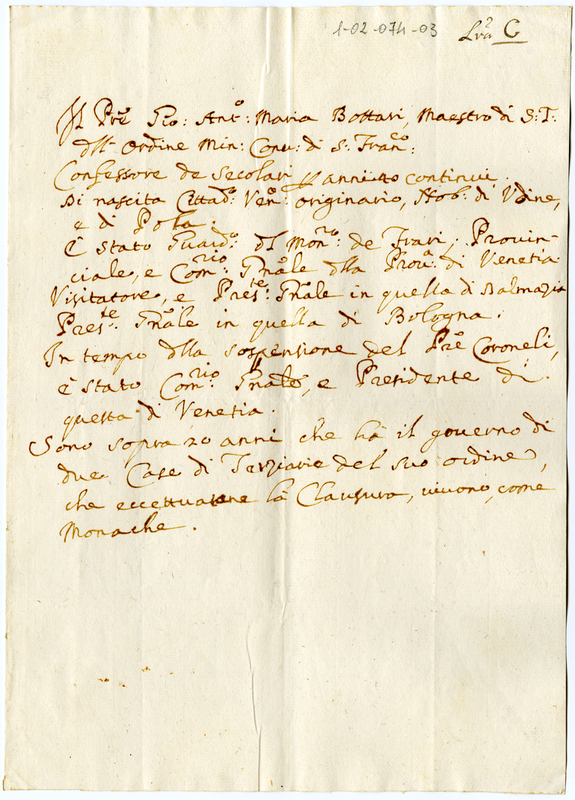 1-02-074-03
Lra C
Il Pre Gio: Anto: Maria Bottari, Maestro di S: T:
dll' Ordine Min: Conv: di S: Franco:
Confessore de Secolari p anni 40 continui.
Di nascita Cittado: Veno: originario, Nob: di Udine,
e di Pola.
È stato Guardo: dl Monrio: de Frari, Provin-
ciale, e Comrio: Gnale dlla Prova: di Venetia
Visitatore, e Preste: Gnale in quella di Dalmazia
Preste: Gnale in quella di Bologna.
In tempo dlla sospensione del Pre Coroneli,
è stato Comrio: Gnale, e Presidente di
questa di Venetia.
Sono sopra 20 anni che hà il governo di
due Case di Terziarie del suo ordine,
che eccettuatane la Clausura, vivono, come
Monache.